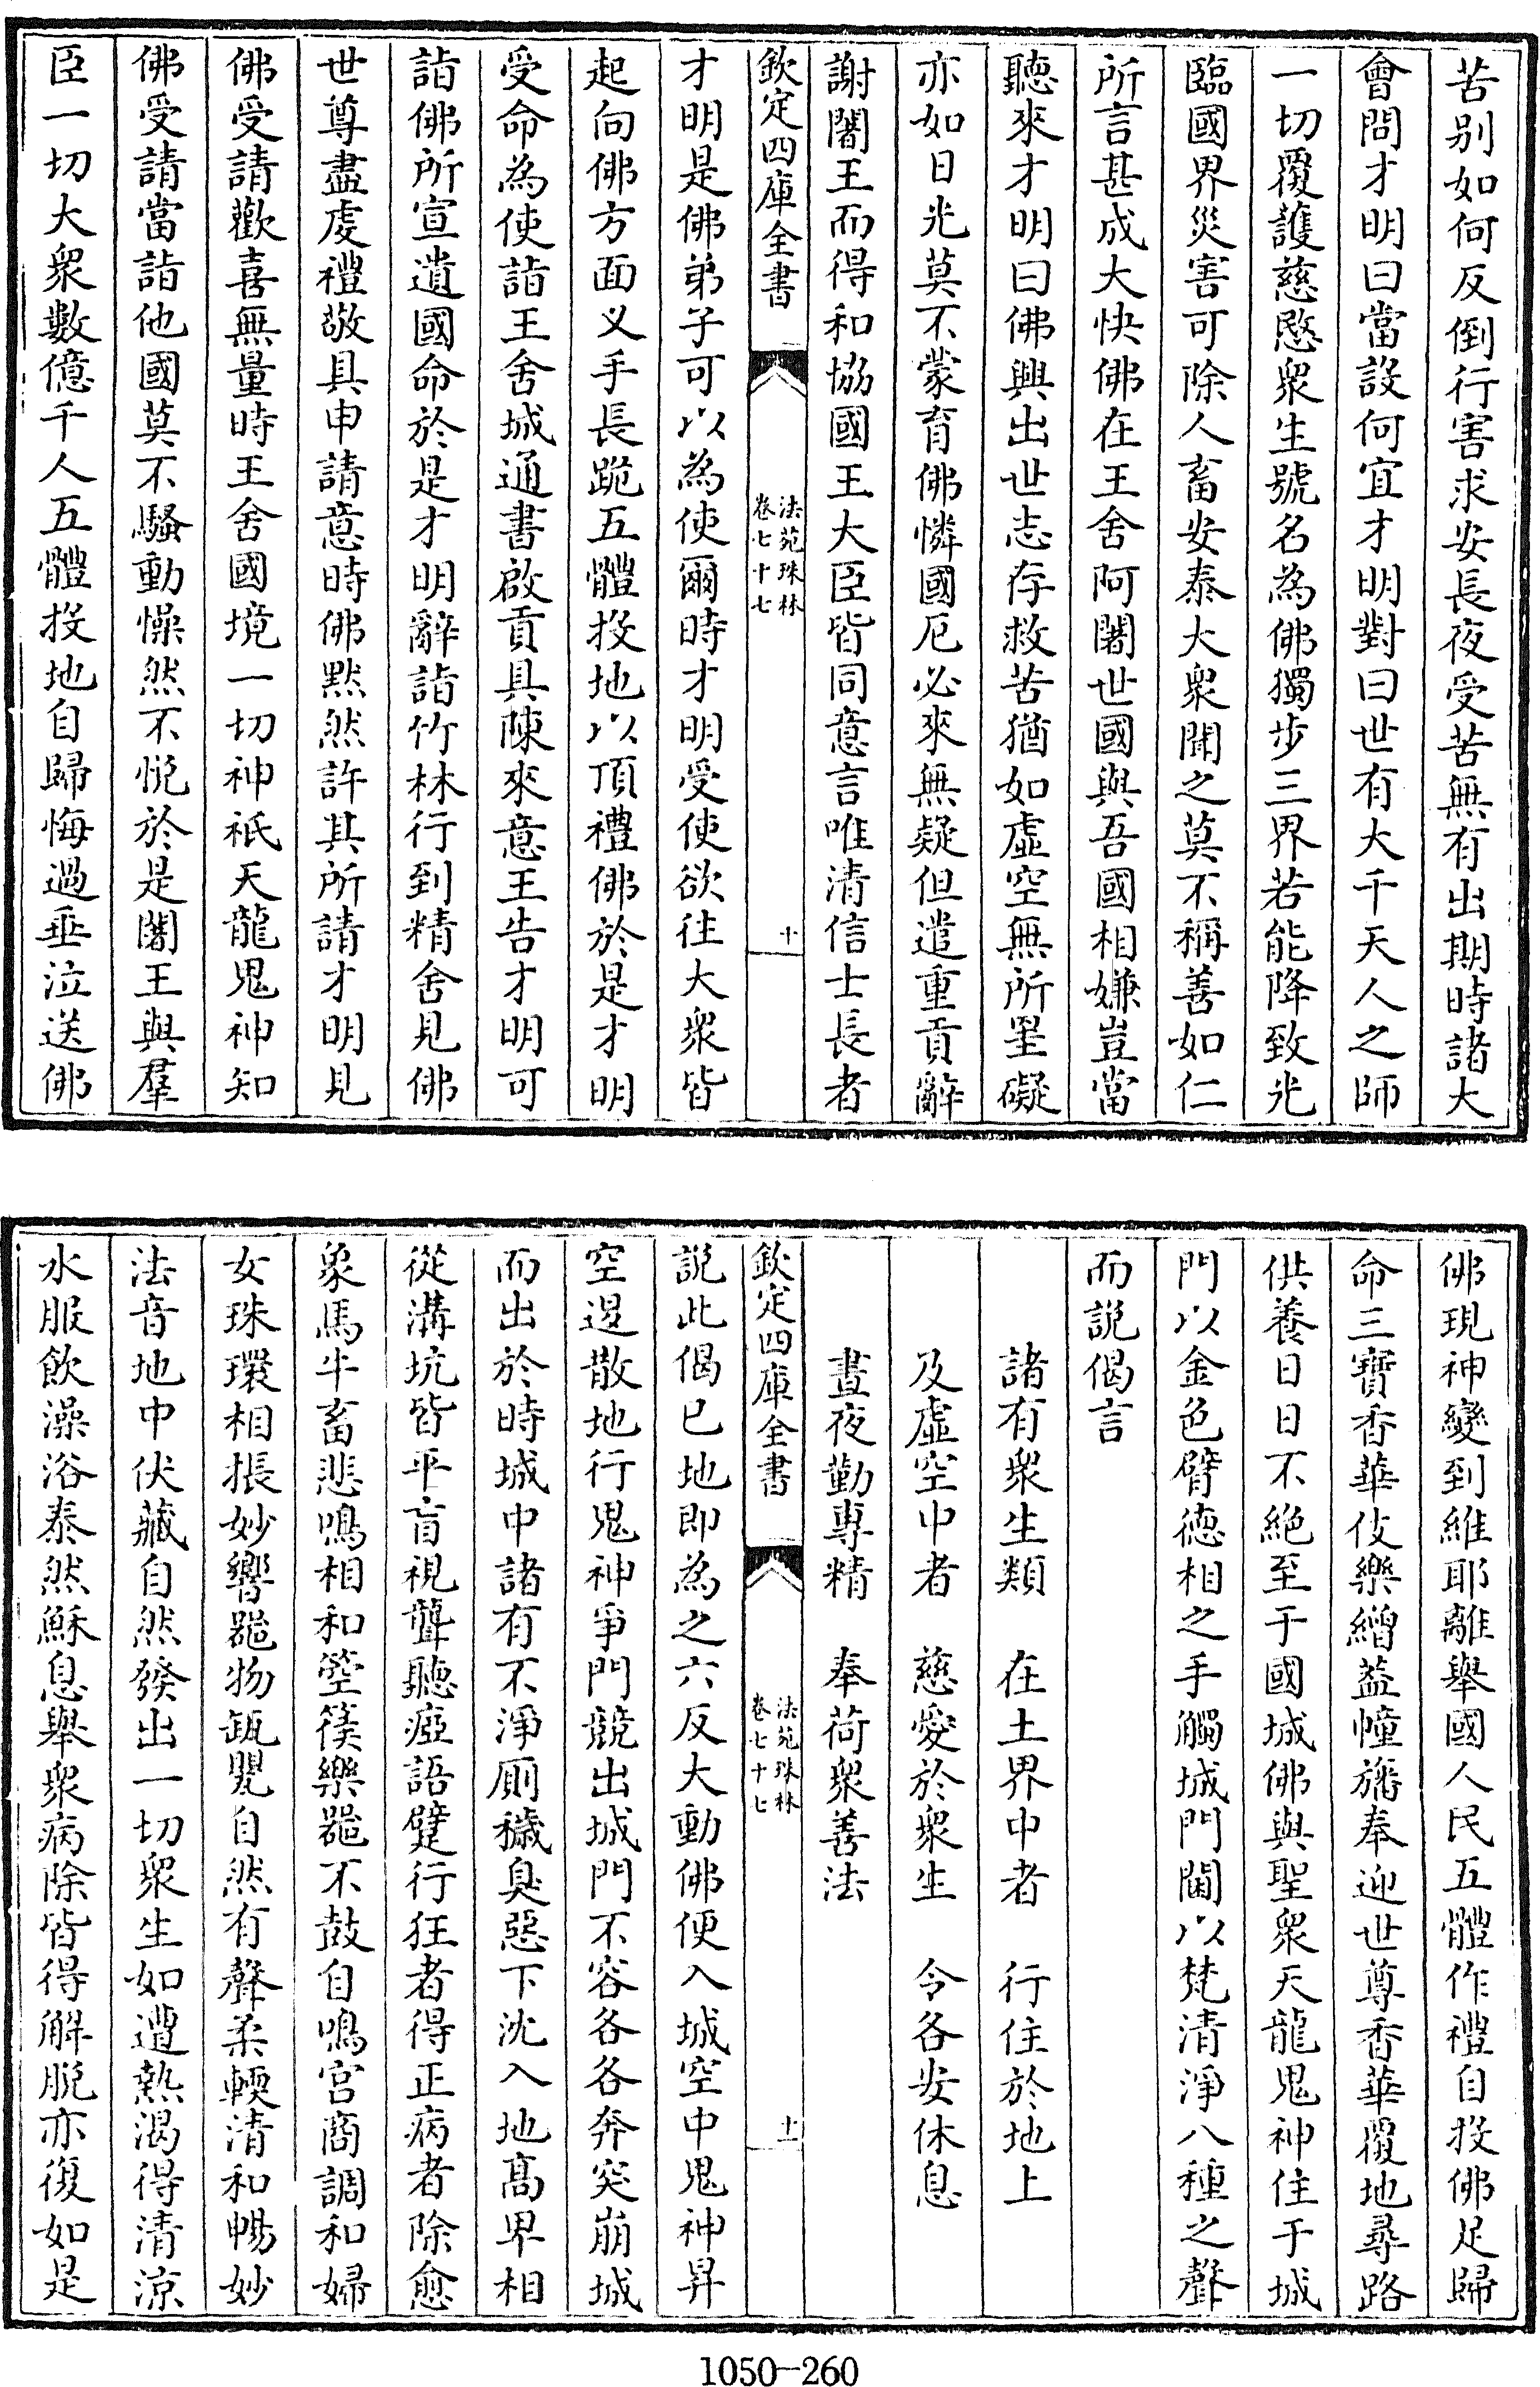 苦别如何反倒行害求安長夜受苦無有出期時諸大
會問才明曰當設何宜才明對曰世有大千天人之師
一切覆護慈愍衆生號名為佛獨步三界若能降致光
臨國界災害可除人畜安泰大衆聞之莫不稱善如仁
所言甚成大快佛在王舍阿闍世國與吾國相嫌豈當
聽來才明曰佛興出世志存救苦猶如虛空無所罣礙
亦如日光莫不蒙育佛憐國厄必來無疑但遣重貢辭
謝闍王而得和協國王大臣皆同意言唯清信士長者
欽定四庫全書
法苑珠林
卷七十七
十
才明是佛弟子可以為使爾時才明受使欲往大衆皆
起向佛方面义手長跪五體投地以頂禮佛於是才明
受命為使詣王舍城通書啟貢具陳來意王告才明可
詣佛所宣遺國命於是才明辭詣竹林行到精舍見佛
世尊盡虔禮敬具申請意時佛黙然許其所請才明見
佛受請歡喜無量時王舍國境一切神祇天龍鬼神知
佛受請當詣他國莫不騷動懆然不悦於是闍王與羣
臣一切大衆數億千人五體投地自歸悔過垂泣送佛
佛現神變到維耶離舉國人民五體作禮自投佛足歸
命三寶香華伎樂繒葢幢旛奉迎世尊香華覆地尋路
供養日日不絶至于國城佛與聖衆天龍鬼神住于城
門以金色臂德相之手觸城門閫以梵清淨八種之聲
而説偈言
諸有衆生類　在土界中者　行住於地上
及虛空中者　慈愛於衆生　令各安休息
晝夜勤專精　奉荷衆善法
欽定四庫全書
法苑珠林
卷七十七
十一
説此偈已地即為之六反大動佛便入城空中鬼神昇
空退散地行鬼神爭門競出城門不容各各奔突崩城
而出於時城中諸有不淨厠穢臭惡下沈入地高卑相
從溝坑皆平盲視聾聽瘂語躄行狂者得正病者除愈
象馬牛畜悲鳴相和箜篌樂器不鼓自鳴宫商調和婦
女珠環相振妙響器物瓵甖自然有聲柔輭清和暢妙
法音地中伏藏自然發出一切衆生如遭熱渴得清涼
水服飲澡浴泰然穌息舉衆病除皆得解脱亦復如是
1050-260